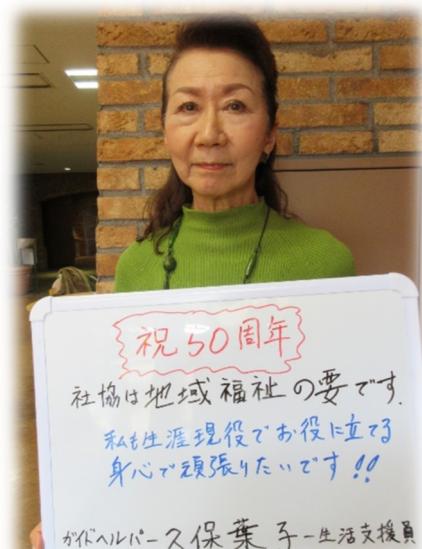 祝50周年
社協は地域福祉の要です.
私も生涯現役でお役に立てる
身心で頑張りたいです!!
ガイドヘルパー久保葉子-生活支援員